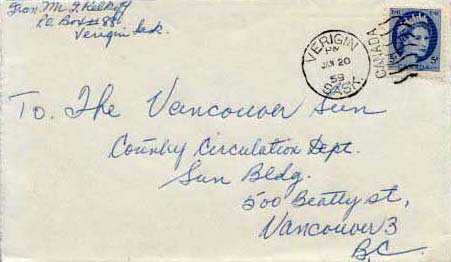 From. Mr. F. Kalkoff
P.O. Box # 88
Verigin Sask.
VERIGIN
PM
JAN 20
59
SASK.
CANADA
To. The Vancouver Sun
Country Circulation Dept.
Sun Bldg.
500 Beatty st,
Vancouver 3
B.C.